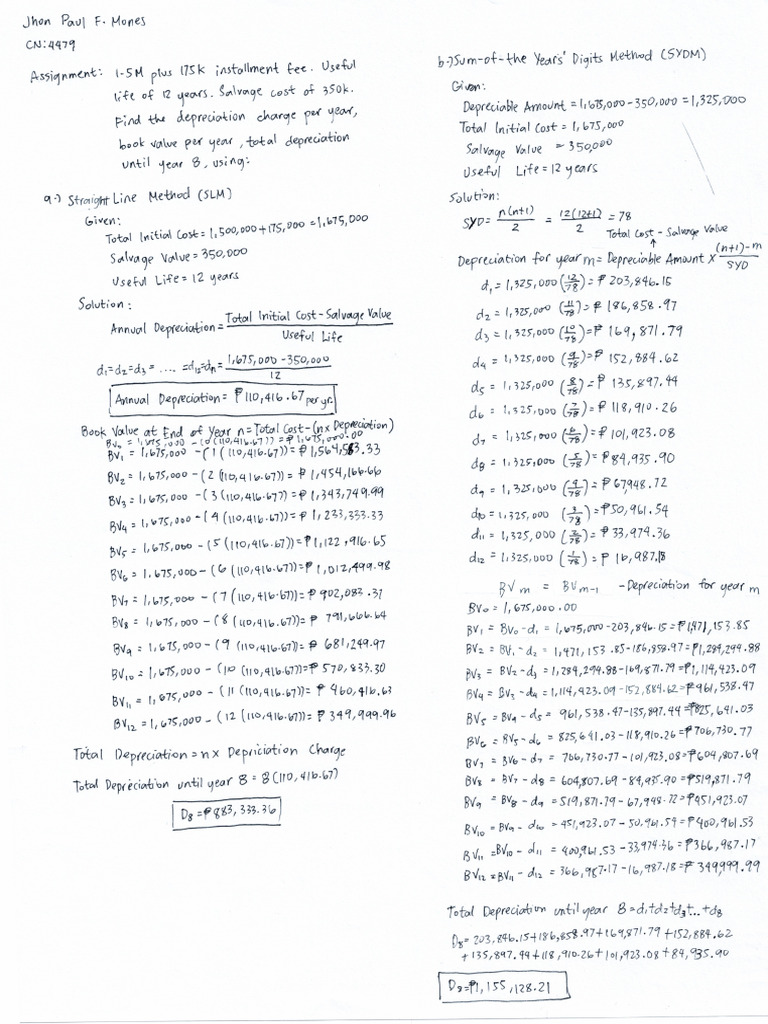 Jhon Paul F. Mones
CN: 4479
Assignment: 1.5M plus 175K installment fee. Useful
life of 12 years. Salvage cost of 350k.
Find the depreciation charge per year,
book value per year, total depreciation
until year 8, using:
a.) Straight Line Method (SLM)
Given:
Total Initial Cost = 1,500,000 + 175,000 = 1,675,000
Salvage Value = 350,000
Useful Life = 12 years
Solution:
Annual Depreciation = Total Initial Cost - Salvage Value
Useful Life
d1 = d2 = d3 = .... = d12 = dn = 1,675,000 - 350,000
12
Annual Depreciation = ₱110,416.67 per yr.
Book Value at End of Year n = Total Cost - (n x Depreciation)
BV0 = 1,675,000 - (0 (110,416.67)) = ₱1,675,000.00
BV1 = 1,675,000 - (1 (110,416.67)) = ₱1,564,583.33
BV2 = 1,675,000 - (2 (110,416.67)) = ₱1,454,166.66
BV3 = 1,675,000 - (3 (110,416.67)) = ₱1,343,749.99
BV4 = 1,675,000 - (4 (110,416.67)) = ₱1,233,333.33
BV5 = 1,675,000 - (5 (110,416.67)) = ₱1,122,916.65
BV6 = 1,675,000 - (6 (110,416.67)) = ₱1,012,499.98
BV7 = 1,675,000 - (7 (110,416.67)) = ₱902,083.31
BV8 = 1,675,000 - (8 (110,416.67)) = ₱791,666.64
BV9 = 1,675,000 - (9 (110,416.67)) = ₱681,249.97
BV10 = 1,675,000 - (10 (110,416.67)) = ₱570,833.30
BV11 = 1,675,000 - (11 (110,416.67)) = ₱460,416.63
BV12 = 1,675,000 - (12 (110,416.67)) = ₱349,999.96
Total Depreciation = n x Depriciation Charge
Total Depreciation until year 8 = 8 (110,416.67)
D8 = ₱883,333.36
b.) Sum-of-the Years' Digits Method (SYDM)
Given:
Depreciable Amount = 1,675,000 - 350,000 = 1,325,000
Total Initial Cost = 1,675,000
Salvage Value = 350,000
Useful Life = 12 years
Solution:
SYD = n(n+1)/2 = 12(12+1)/2 = 78
Total Cost - Salvage Value
↑
Depreciation for year m = Depreciable Amount x (n+1)-m/SYD
d1 = 1,325,000 (12/78) = ₱203,846.15
d2 = 1,325,000 (11/78) = ₱186,858.97
d3 = 1,325,000 (10/78) = ₱169,871.79
d4 = 1,325,000 (9/78) = ₱152,884.62
d5 = 1,325,000 (8/78) = ₱135,897.44
d6 = 1,325,000 (7/78) = ₱118,910.26
d7 = 1,325,000 (6/78) = ₱101,923.08
d8 = 1,325,000 (5/78) = ₱84,935.90
d9 = 1,325,000 (4/78) = ₱67,948.72
d10 = 1,325,000 (3/78) = ₱50,961.54
d11 = 1,325,000 (2/78) = ₱33,974.36
d12 = 1,325,000 (1/78) = ₱16,987.18
BVm = BVm-1 - Depreciation for year m
BV0 = 1,675,000.00
BV1 = BV0 - d1 = 1,675,000 - 203,846.15 = ₱1,471,153.85
BV2 = BV1 - d2 = 1,471,153.85 - 186,858.97 = ₱1,284,294.88
BV3 = BV2 - d3 = 1,284,294.88 - 169,871.79 = ₱1,114,423.09
BV4 = BV3 - d4 = 1,114,423.09 - 152,884.62 = ₱961,538.47
BV5 = BV4 - d5 = 961,538.47 - 135,897.44 = ₱825,641.03
BV6 = BV5 - d6 = 825,641.03 - 118,910.26 = ₱706,730.77
BV7 = BV6 - d7 = 706,730.77 - 101,923.08 = ₱604,807.69
BV8 = BV7 - d8 = 604,807.69 - 84,935.90 = ₱519,871.79
BV9 = BV8 - d9 = 519,871.79 - 67,948.72 = ₱451,923.07
BV10 = BV9 - d10 = 451,923.07 - 50,961.54 = ₱400,961.53
BV11 = BV10 - d11 = 400,961.53 - 33,974.36 = ₱366,987.17
BV12 = BV11 - d12 = 366,987.17 - 16,987.18 = ₱349,999.99
Total Depreciation until year 8 = d1+d2+d3+...+d8
D8 = 203,846.15 + 186,858.97 + 169,871.79 + 152,884.62
+ 135,897.44 + 118,910.26 + 101,923.08 + 84,935.90
D8 = ₱1,155,128.21